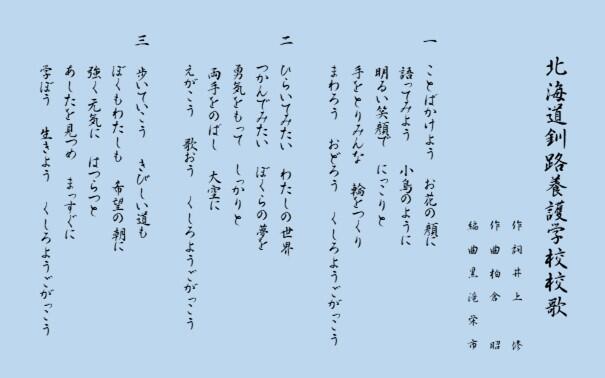 北海道釧路養護学校校歌
作詞 井上 修
作曲 柏倉 昭
編曲 黒滝栄市
一 ことばかけよう お花の顔に
語ってみよう 小鳥のように
明るい笑顔で にっこりと
手をとりみんな 輪をつくり
まわろう おどろう くしろようごがっこう
二 ひらいてみたい わたしの世界
つかんでみたい ぼくらの夢を
勇気をもって しっかりと
両手をのばし 大空に
えがこう 歌おう くしろようごがっこう
三 歩いていこう きびしい道も
ぼくもわたしも 希望の朝に
強く元気に はつらつと
あしたを見つめ まっすぐに
学ぼう 生きよう くしろようごがっこう